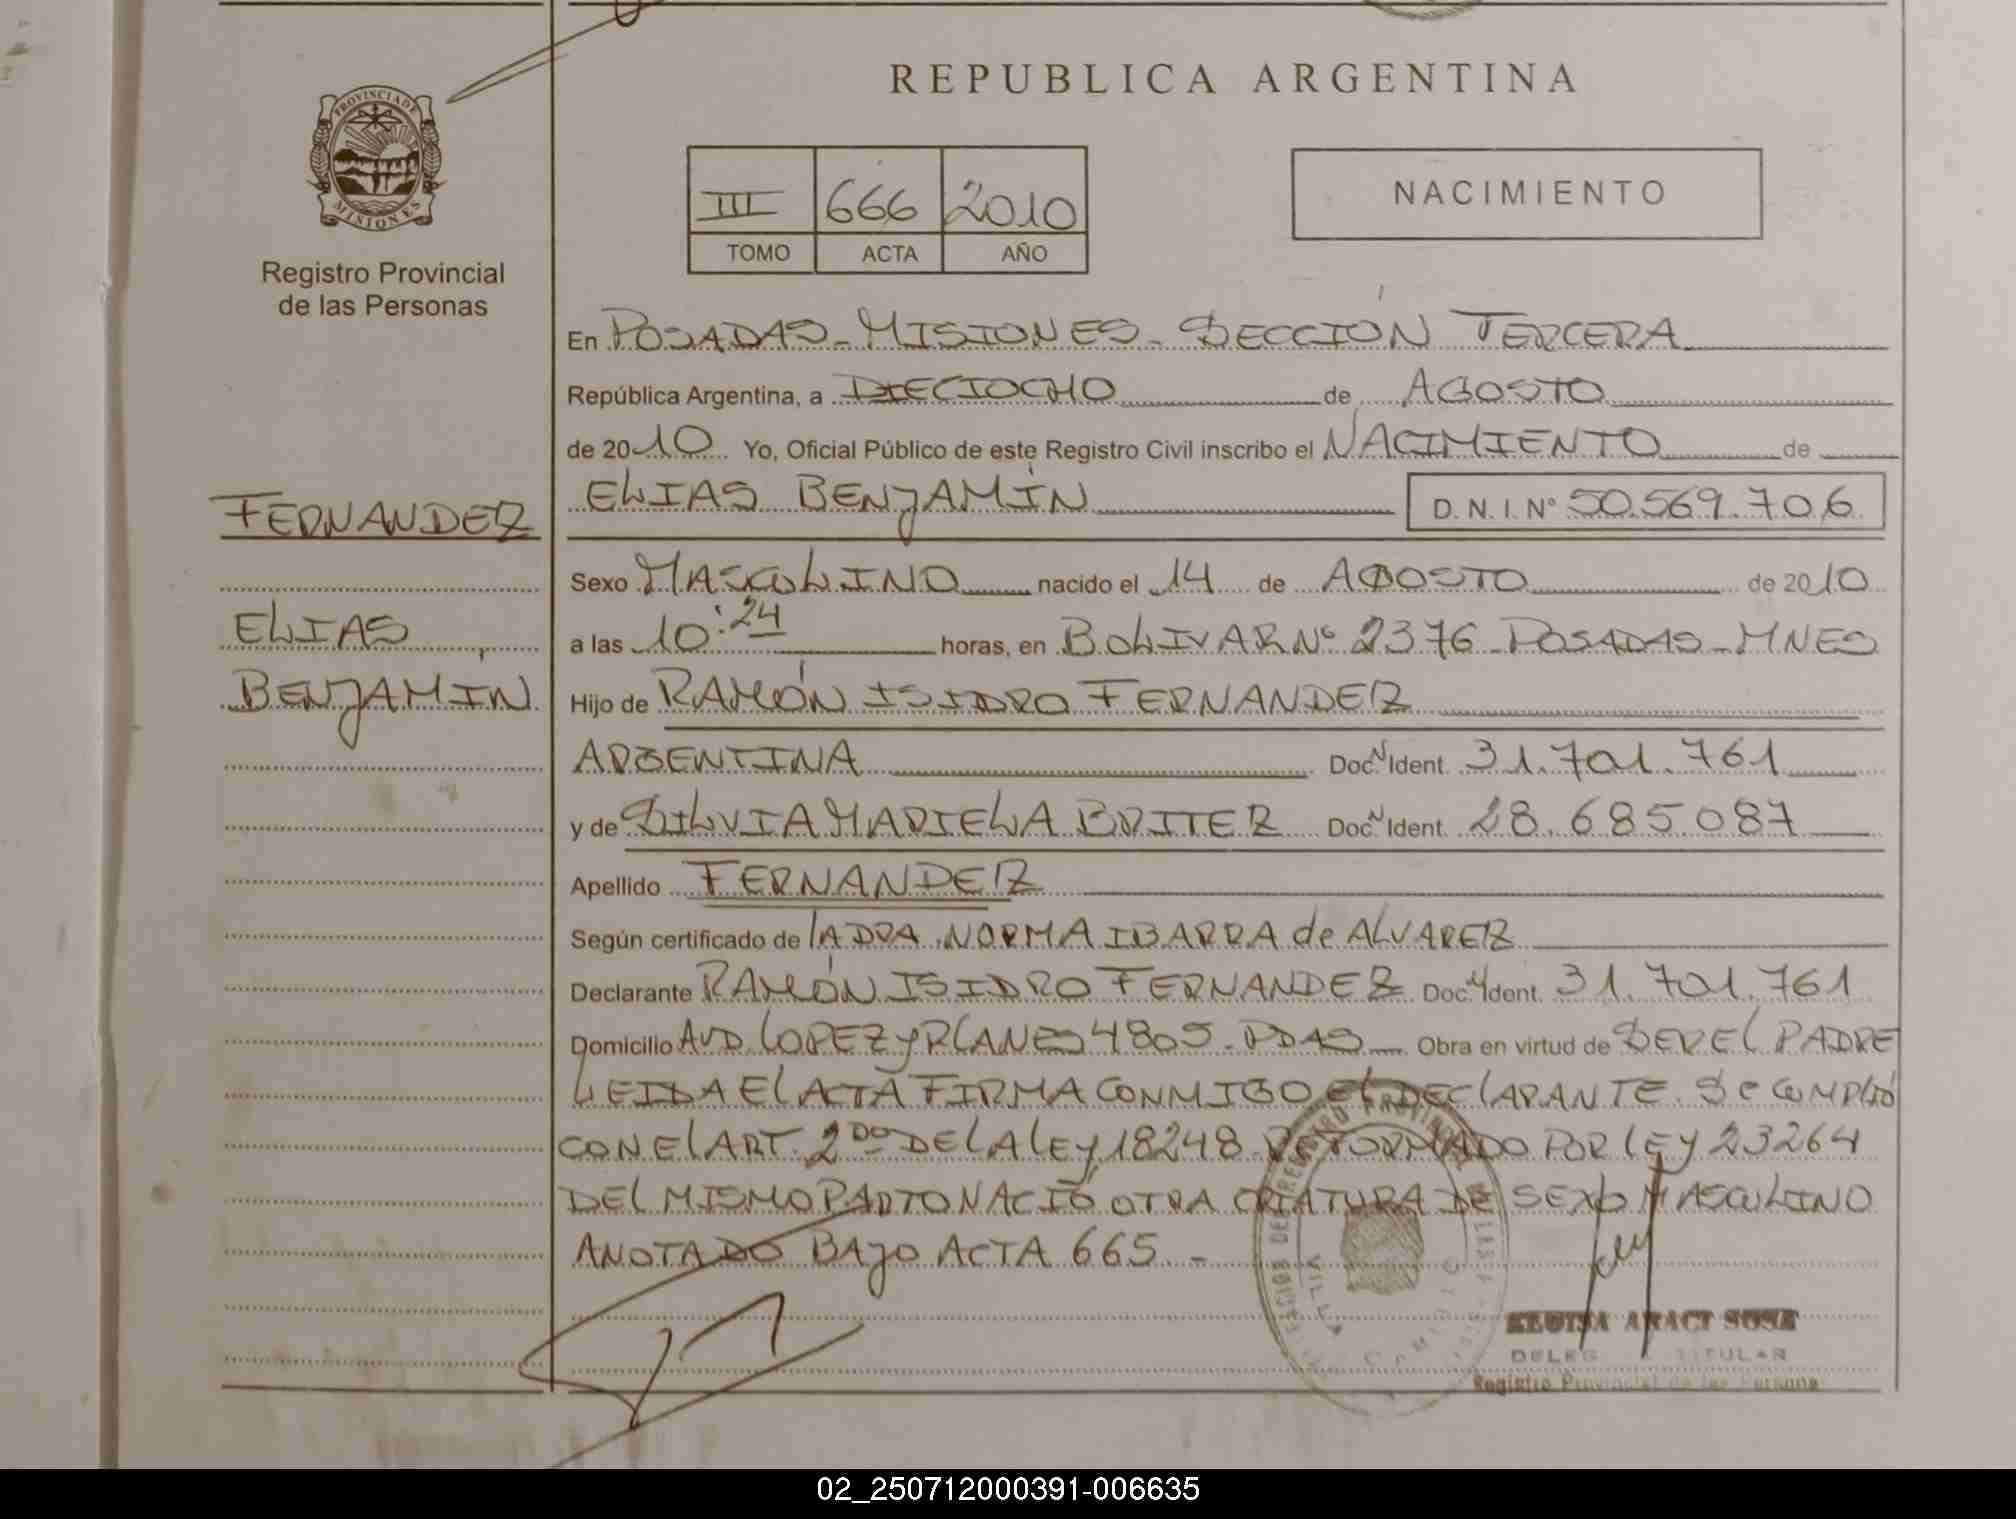 REPUBLICA ARGENTINA
PROVINCIA DE
MISIONES
Registro Provincial
de las Personas
III 666 2010
TOMO ACTA AÑO
NACIMIENTO
En POSADAS - MISIONES - SECCIÓN TERCERA
República Argentina, a DIECIOCHO de AGOSTO
de 2010 Yo, Oficial Público de este Registro Civil inscribo el NACIMIENTO de
FERNANDEZ
ELIAS BENJAMÍN D.N.I. Nº 50.569.706
Sexo MASCULINO nacido el 14 de AGOSTO de 2010
ELIAS
a las 10:24 horas, en BOLIVAR Nº 2376 - POSADAS - MNES
BENJAMÍN
Hijo de RAMÓN ISIDRO FERNANDEZ
ARGENTINA Doc. N Ident. 31.701.761
y de SILVIA MARIELA BRITEZ Doc. N Ident. 28.685.087
Apellido FERNANDEZ
Según certificado de lA DRA. NORMA IBARRA de ALVAREZ
Declarante RAMÓN ISIDRO FERNANDEZ Doc. N Ident. 31.701.761
Domicilio AVD. LOPEZ y PLANES 4805 - PDAS Obra en virtud de SER EL PADRE
LEIDA El ACTA FIRMA CONMIGO El DEClARANTE. Se CUMPLIÓ
CON El ART. 2DO DE LA lEy 18248 REFORMADO POR lEy 23264
DEL MISMO PARTO NACIÓ OTRA CRIATURA DE SEXO MASCULINO
ANOTADO BAJO ACTA 665. -
ARACI SOSA
TITULAR
Registro Provincial de las Persona
02_250712000391-006635